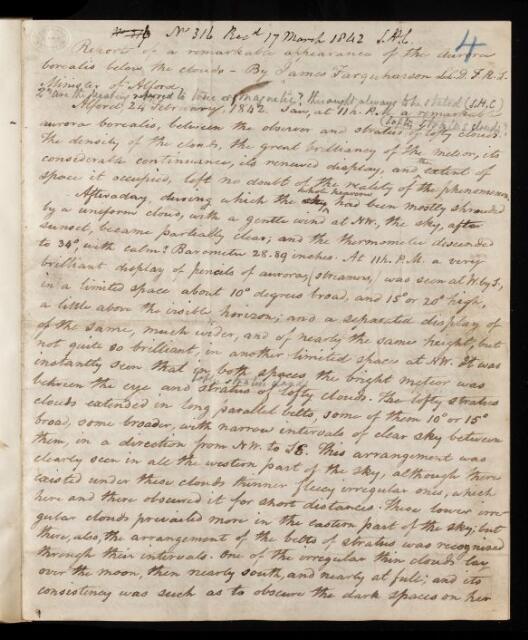 No 316 Recd 17 March 1842 S.H.C.
4
Report of a remarkable appearance of the aurora
borealis below the clouds - By James Farquharson LL.D. F.R.S.
Minister of Alford.
2° are the bearings referred to true or magnetic? this ought always to be stated (S.H.C)
Alford 24 February, 1842. Saw, at 11h. P.M. a remarkable
aurora borealis, between the observer and stratus of lofty clouds.
The density of the clouds, the great brilliancy of the meteor, its
considerable continuance, its renewed display, and the extent of
space it occupied, left no doubt of the reality of the phenomenon.
After a day, during which the sky whole heavens had been mostly shrouded
by a uniform cloud, with a gentle wind at NW, the sky, after
sunset, became partially clear; and the thermometer descended
to 34°, with calm? Barometer 28.89 inches. At 11h. P.M. a very
brilliant display of pencils of aurora, (streamers,) was seen at W.by S,
in a limited space about 10° degrees broad, and 15° or 20° high,
a little above the visible horizon; and a separated display of
of the same, much wider, and of nearly the same height, but
not quite so brilliant, in another limited space at NW. It was
instantly seen that in both spaces the bright meteor was
between the eye and stratus of lofty clouds. The lofty stratus
clouds extended in long parallel belts, some of them 10° or 15°
broad, some broader, with narrow intervals of clear sky between
them, in a direction from N.W. to SE. This arrangement was
clearly seen in all the western part of the sky, although there
existed under these clouds thinner fleecy irregular ones, which
here and there obscured it for short distances. These lower irre-
gular clouds prevailed more in the eastern part of the sky; but
there, also, the arrangement of the belts of stratus was recognised
through their intervals. One of the irregular thin clouds lay
over the moon, then nearly south, and nearly at full; and its
consistency was such as to obscure the dark spaces on her